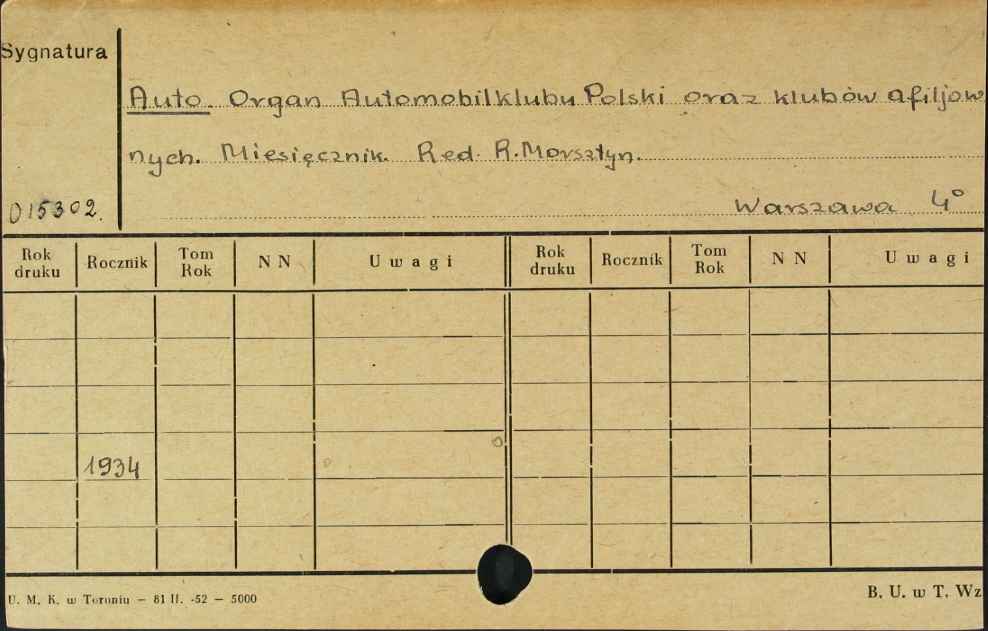 Sygnatura
Auto. Organ Automobilklubu Polski oraz klubów afiljow
nych. Miesięcznik. Red. R. Morsztyn.
015302.
Warszawa 4°
Rok druku Rocznik Tom Rok NN Uwagi Rok druku Rocznik Tom Rok NN Uwagi
1934
U. M. K. w Toruniu — 81 II. -52 — 5000
B. U. w T. Wz